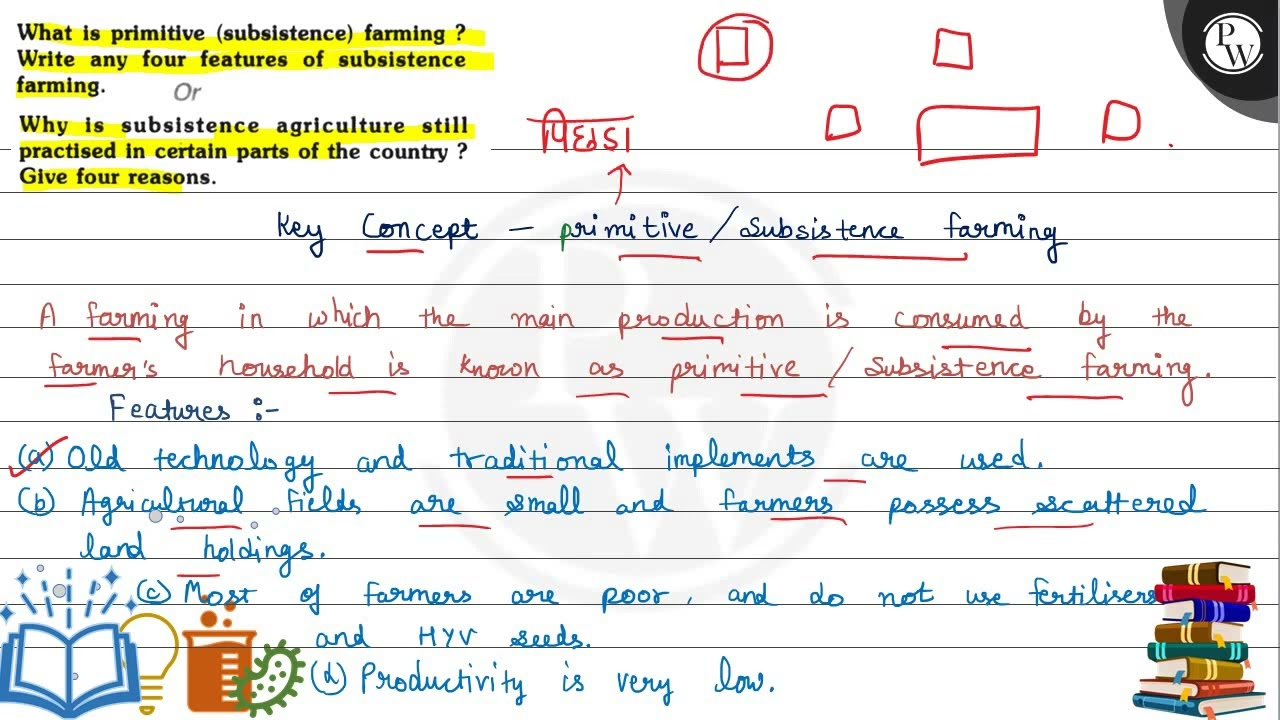 What is primitive (subsistence) farming ?
Write any four features of subsistence
farming.
Or
Why is subsistence agriculture still
practised in certain parts of the country ?
Give four reasons.
PW
Key Concept – primitive/Subsistence farming
A farming in which the main production is consumed by the
farmer's household is known as primitive / Subsistence farming.
Features :-
(a) Old technology and traditional implements are used.
(b) Agricultural fields are small and farmers possess scattered
land holdings.
(c) Most of farmers are poor, and do not use fertilisers
and HYV seeds.
(d) Productivity is very low.